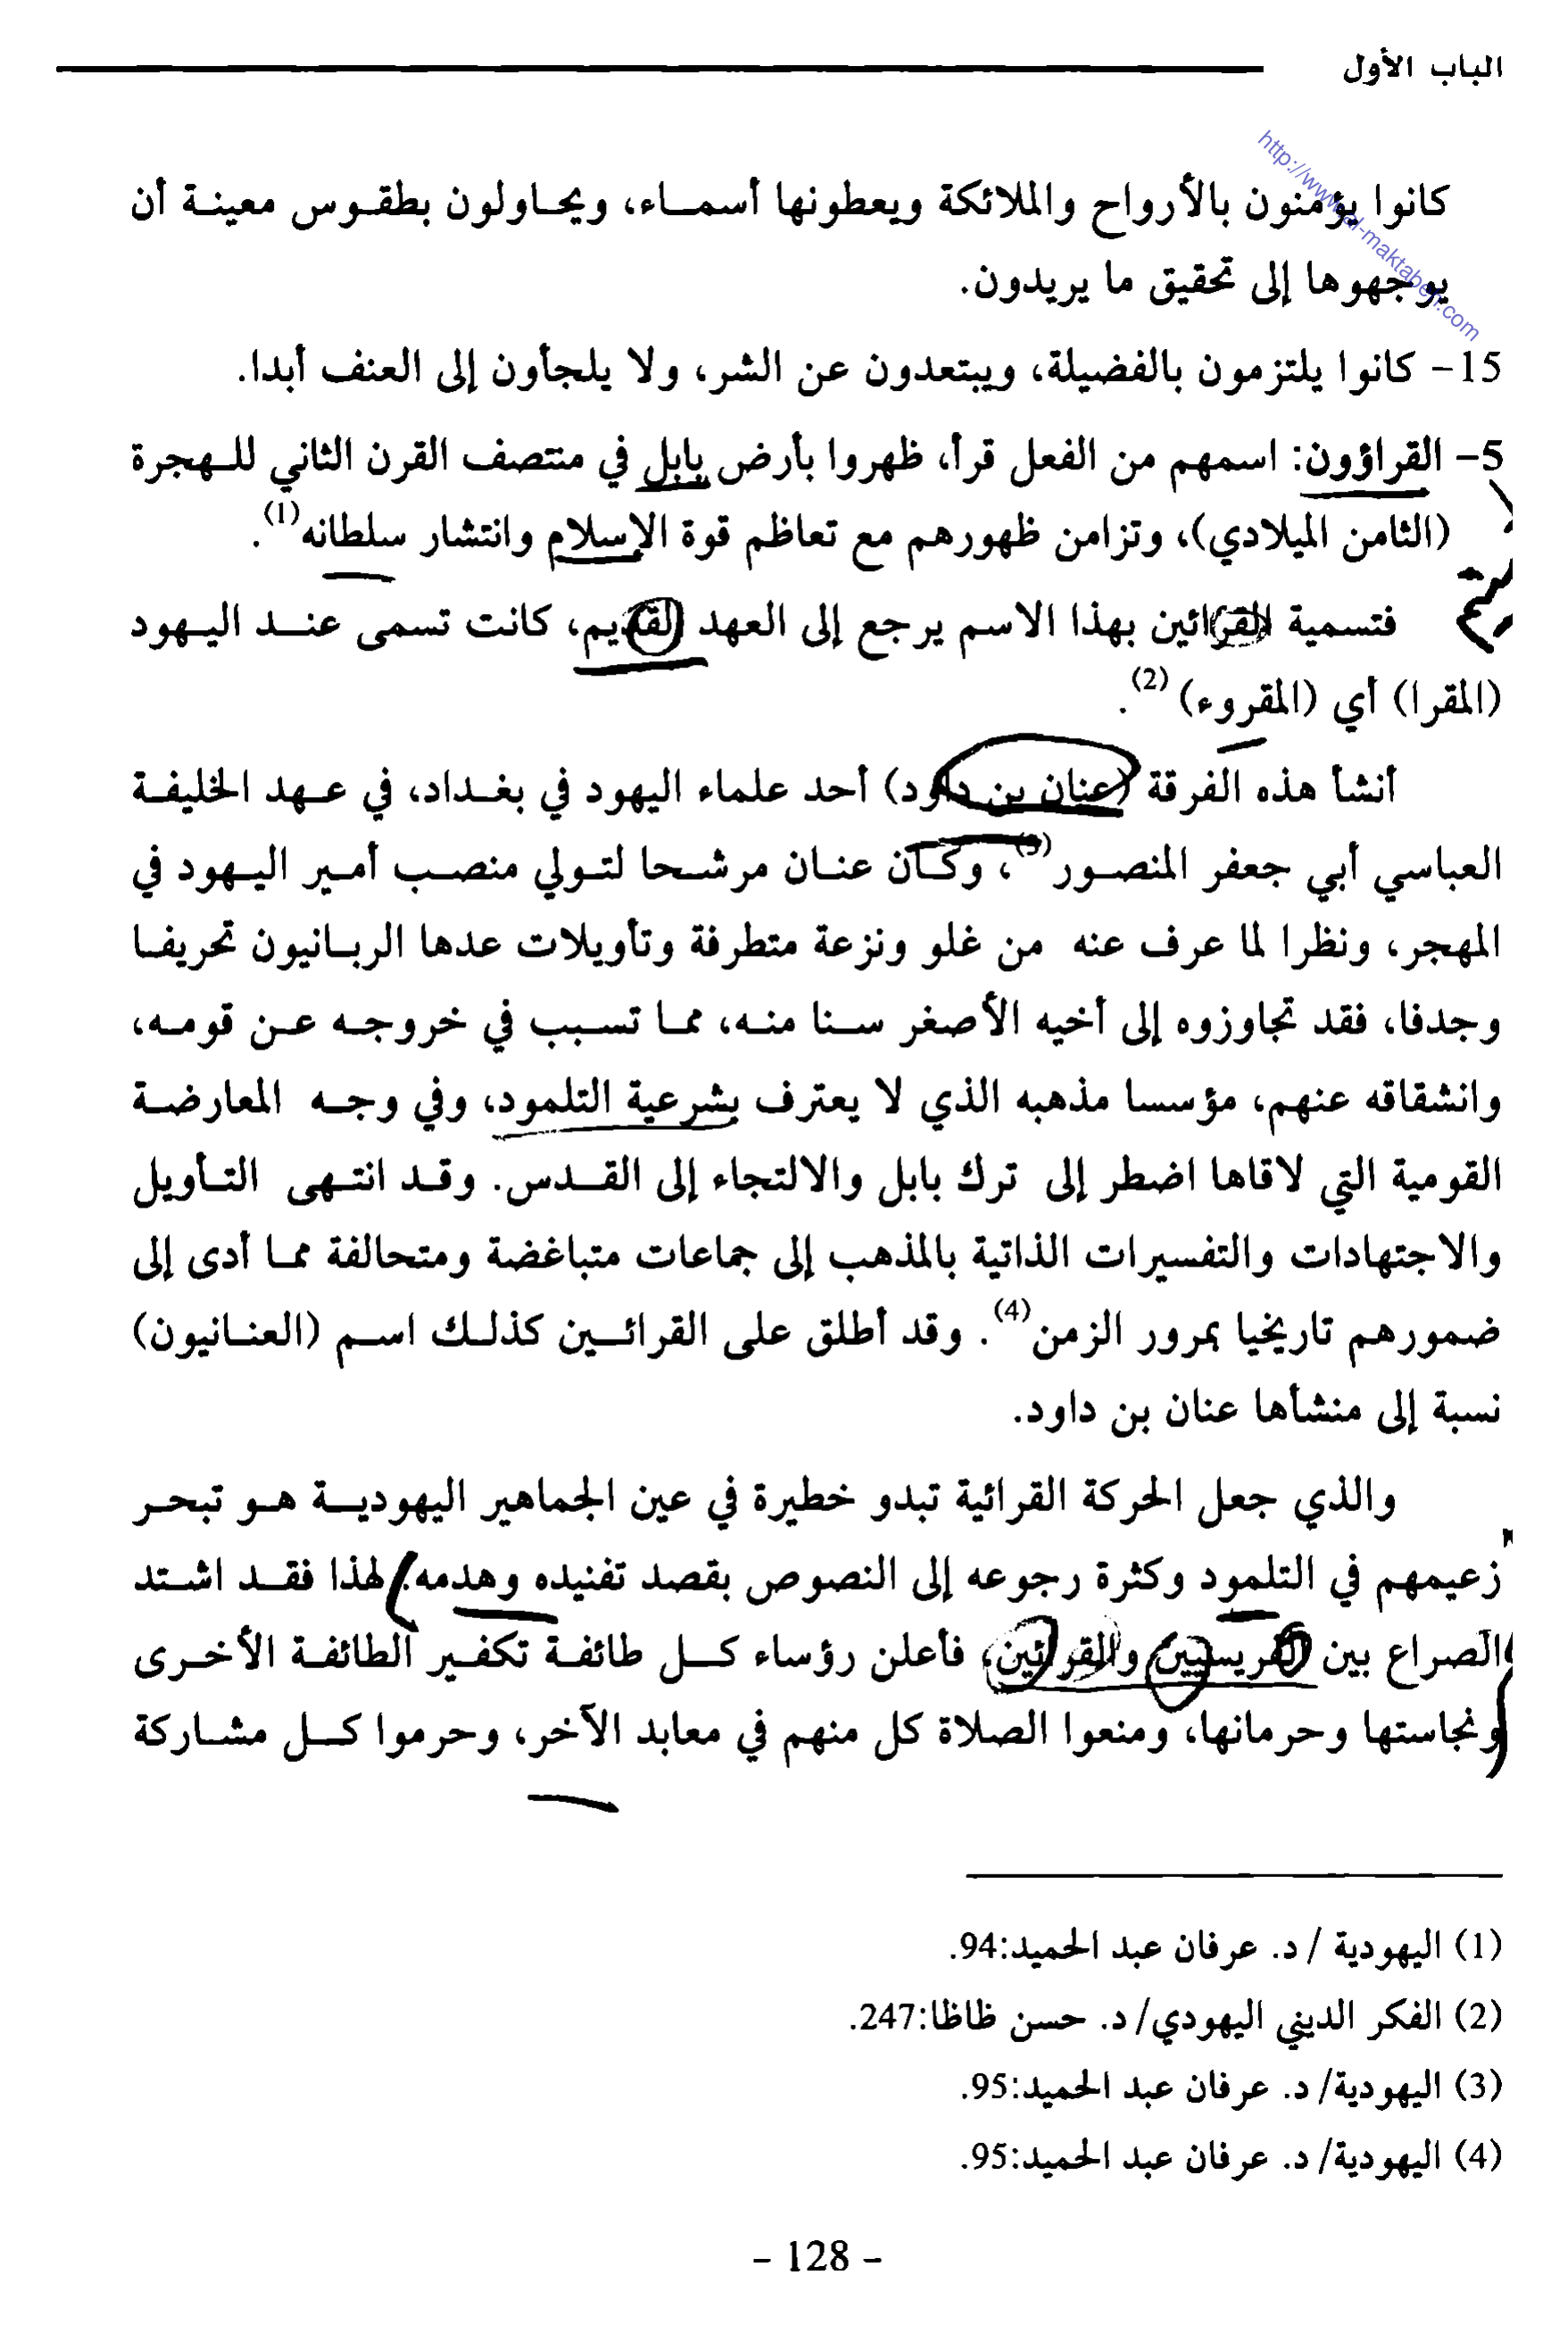 الباب الأول
كانوا يؤمنون بالأرواح والملائكة ويعطونها أسماء، ويحاولون بطقوس معينة أن
يوجهوها إلى تحقيق ما يريدون.
15- كانوا يلتزمون بالفضيلة، ويبتعدون عن الشر، ولا يلجأون إلى العنف أبدا.
5- القراؤون: اسمهم من الفعل قرأ، ظهروا بأرض بابل في منتصف القرن الثاني للهجرة
(الثامن الميلادي)، وتزامن ظهورهم مع تعاظم قوة الإسلام وانتشار سلطانه(1).
فتسمية القرائين بهذا الاسم يرجع إلى العهد القديم، كانت تسمى عند اليهود
(المقرا) أي (المقروء) (2).
أنشأ هذه الفرقة (عنان بن داود) أحد علماء اليهود في بغداد، في عهد الخليفة
العباسي أبي جعفر المنصور(3)، وكان عنان مرشحا لتولي منصب أمير اليهود في
المهجر، ونظرا لما عرف عنه من غلو ونزعة متطرفة وتأويلات عدها الربانيون تحريفا
وجدفا، فقد تجاوزوه إلى أخيه الأصغر سنا منه، مما تسبب في خروجه عن قومه،
وانشقاقه عنهم، مؤسسا مذهبه الذي لا يعترف بشرعية التلمود، وفي وجه المعارضة
القومية التي لاقاها اضطر إلى ترك بابل والالتجاء إلى القدس. وقد انتهى التأويل
والاجتهادات والتفسيرات الذاتية بالمذهب إلى جماعات متباغضة ومتحالفة مما أدى إلى
ضمورهم تاريخيا بمرور الزمن(4). وقد أطلق على القرائين كذلك اسم (العنانيون)
نسبة إلى منشأها عنان بن داود.
والذي جعل الحركة القرائية تبدو خطيرة في عين الجماهير اليهودية هو تبحر
زعيمهم في التلمود وكثرة رجوعه إلى النصوص بقصد تفنيده وهدمه. لهذا فقد اشتد
الصراع بين الفريسيين والقرائين، فأعلن رؤساء كل طائفة تكفير الطائفة الأخرى
ونجاستها وحرمانها، ومنعوا الصلاة كل منهم في معابد الآخر، وحرموا كل مشاركة
(1) اليهودية / د. عرفان عبد الحميد:94.
(2) الفكر الديني اليهودي/ د. حسن ظاظا:247.
(3) اليهودية/ د. عرفان عبد الحميد:95.
(4) اليهودية/ د. عرفان عبد الحميد:95.
- 128 -